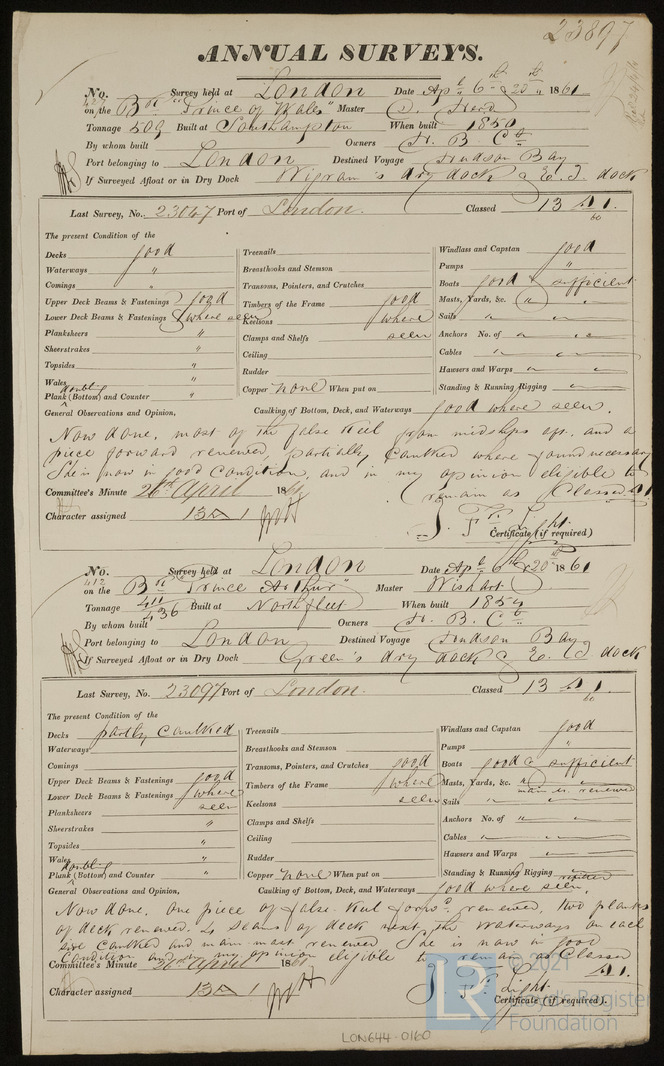 23897
ANNUAL SURVEYS.
No. 427 Survey held at London Date Apl 6th & 20th 1861
on the Bqe "Prince of Wales" Master D. Herd
Tonnage 509 Built at Southampton When built 1850
By whom built Owners H. B. Co
Port belonging to London Destined Voyage Hudson Bay
If Surveyed Afloat or in Dry Dock Wigram's dry dock & E. I. dock
Last Survey, No. 23047 Port of London. Classed 13 A 1. 60
The present Condition of the
Decks good
Waterways "
Comings "
Upper Deck Beams & Fastenings good
Lower Deck Beams & Fastenings where seen
Planksheers "
Sheerstrakes "
Topsides "
Wales "
doubling
Plank (Bottom) and Counter "
Treenails
Breasthooks and Stemson
Transoms, Pointers, and Crutches
Timbers of the Frame good
Keelsons where
Clamps and Shelfs seen
Ceiling
Rudder
Copper none When put on
Windlass and Capstan good
Pumps "
Boats good & sufficient
Masts, Yards, &c. "
Sails "
Anchors No. of "
Cables "
Hawsers and Warps "
Standing & Running Rigging "
General Observations and Opinion, Caulking of Bottom, Deck, and Waterways good where seen.
Now done, most of the false keel from midships aft, and a
piece forward renewed, partially Caulked where found necessary
She is now in good Condition, and in my opinion eligible to
remain as Classed A1.
Committee's Minute 26th April 1861
Character assigned 13 A 1
J. F. Light
Certificate (if required)
No. 412 Survey held at London Date Apl 6th & 20th 1861
on the Bqe "Prince Arthur" Master Wishart
Tonnage 411 436 Built at Northfleet When built 1854
By whom built Owners H. B. Co
Port belonging to London Destined Voyage Hudson Bay
If Surveyed Afloat or in Dry Dock Green's dry dock & E. I. dock
Last Survey, No. 23097 Port of London. Classed 13 A 1. 60
The present Condition of the
Decks partly Caulked
Waterways
Comings
Upper Deck Beams & Fastenings good
Lower Deck Beams & Fastenings where
Planksheers seen
Sheerstrakes "
Topsides "
Wales "
doubling
Plank (Bottom) and Counter "
Treenails
Breasthooks and Stemson
Transoms, Pointers, and Crutches good
Timbers of the Frame where
Keelsons seen
Clamps and Shelfs
Ceiling
Rudder
Copper none When put on
Windlass and Capstan good
Pumps "
Boats good & sufficient
Masts, Yards, &c. "
main m. renewed
Sails "
Anchors No. of "
Cables "
Hawsers and Warps "
Standing & Running Rigging
General Observations and Opinion, Caulking of Bottom, Deck, and Waterways good where seen.
Now done, One piece of false keel forwd renewed, two planks
of deck renewed. seams of deck next the Waterways on each
side Caulked and main mast renewed She is now in good
Condition and in my opinion eligible to remain as Classed
A1.
Committee's Minute 26 April 1861
Character assigned 13 A 1
J. F. Light
Certificate (if required).
LR © 2021
Lloyd's Register
Foundation
LON644-0160